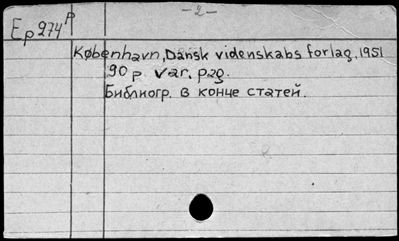 - 2 -
Ep 274 P
København, Dansk videnskabs forlag, 1951
90 p var. pag.
Библиогр. в конце статей.